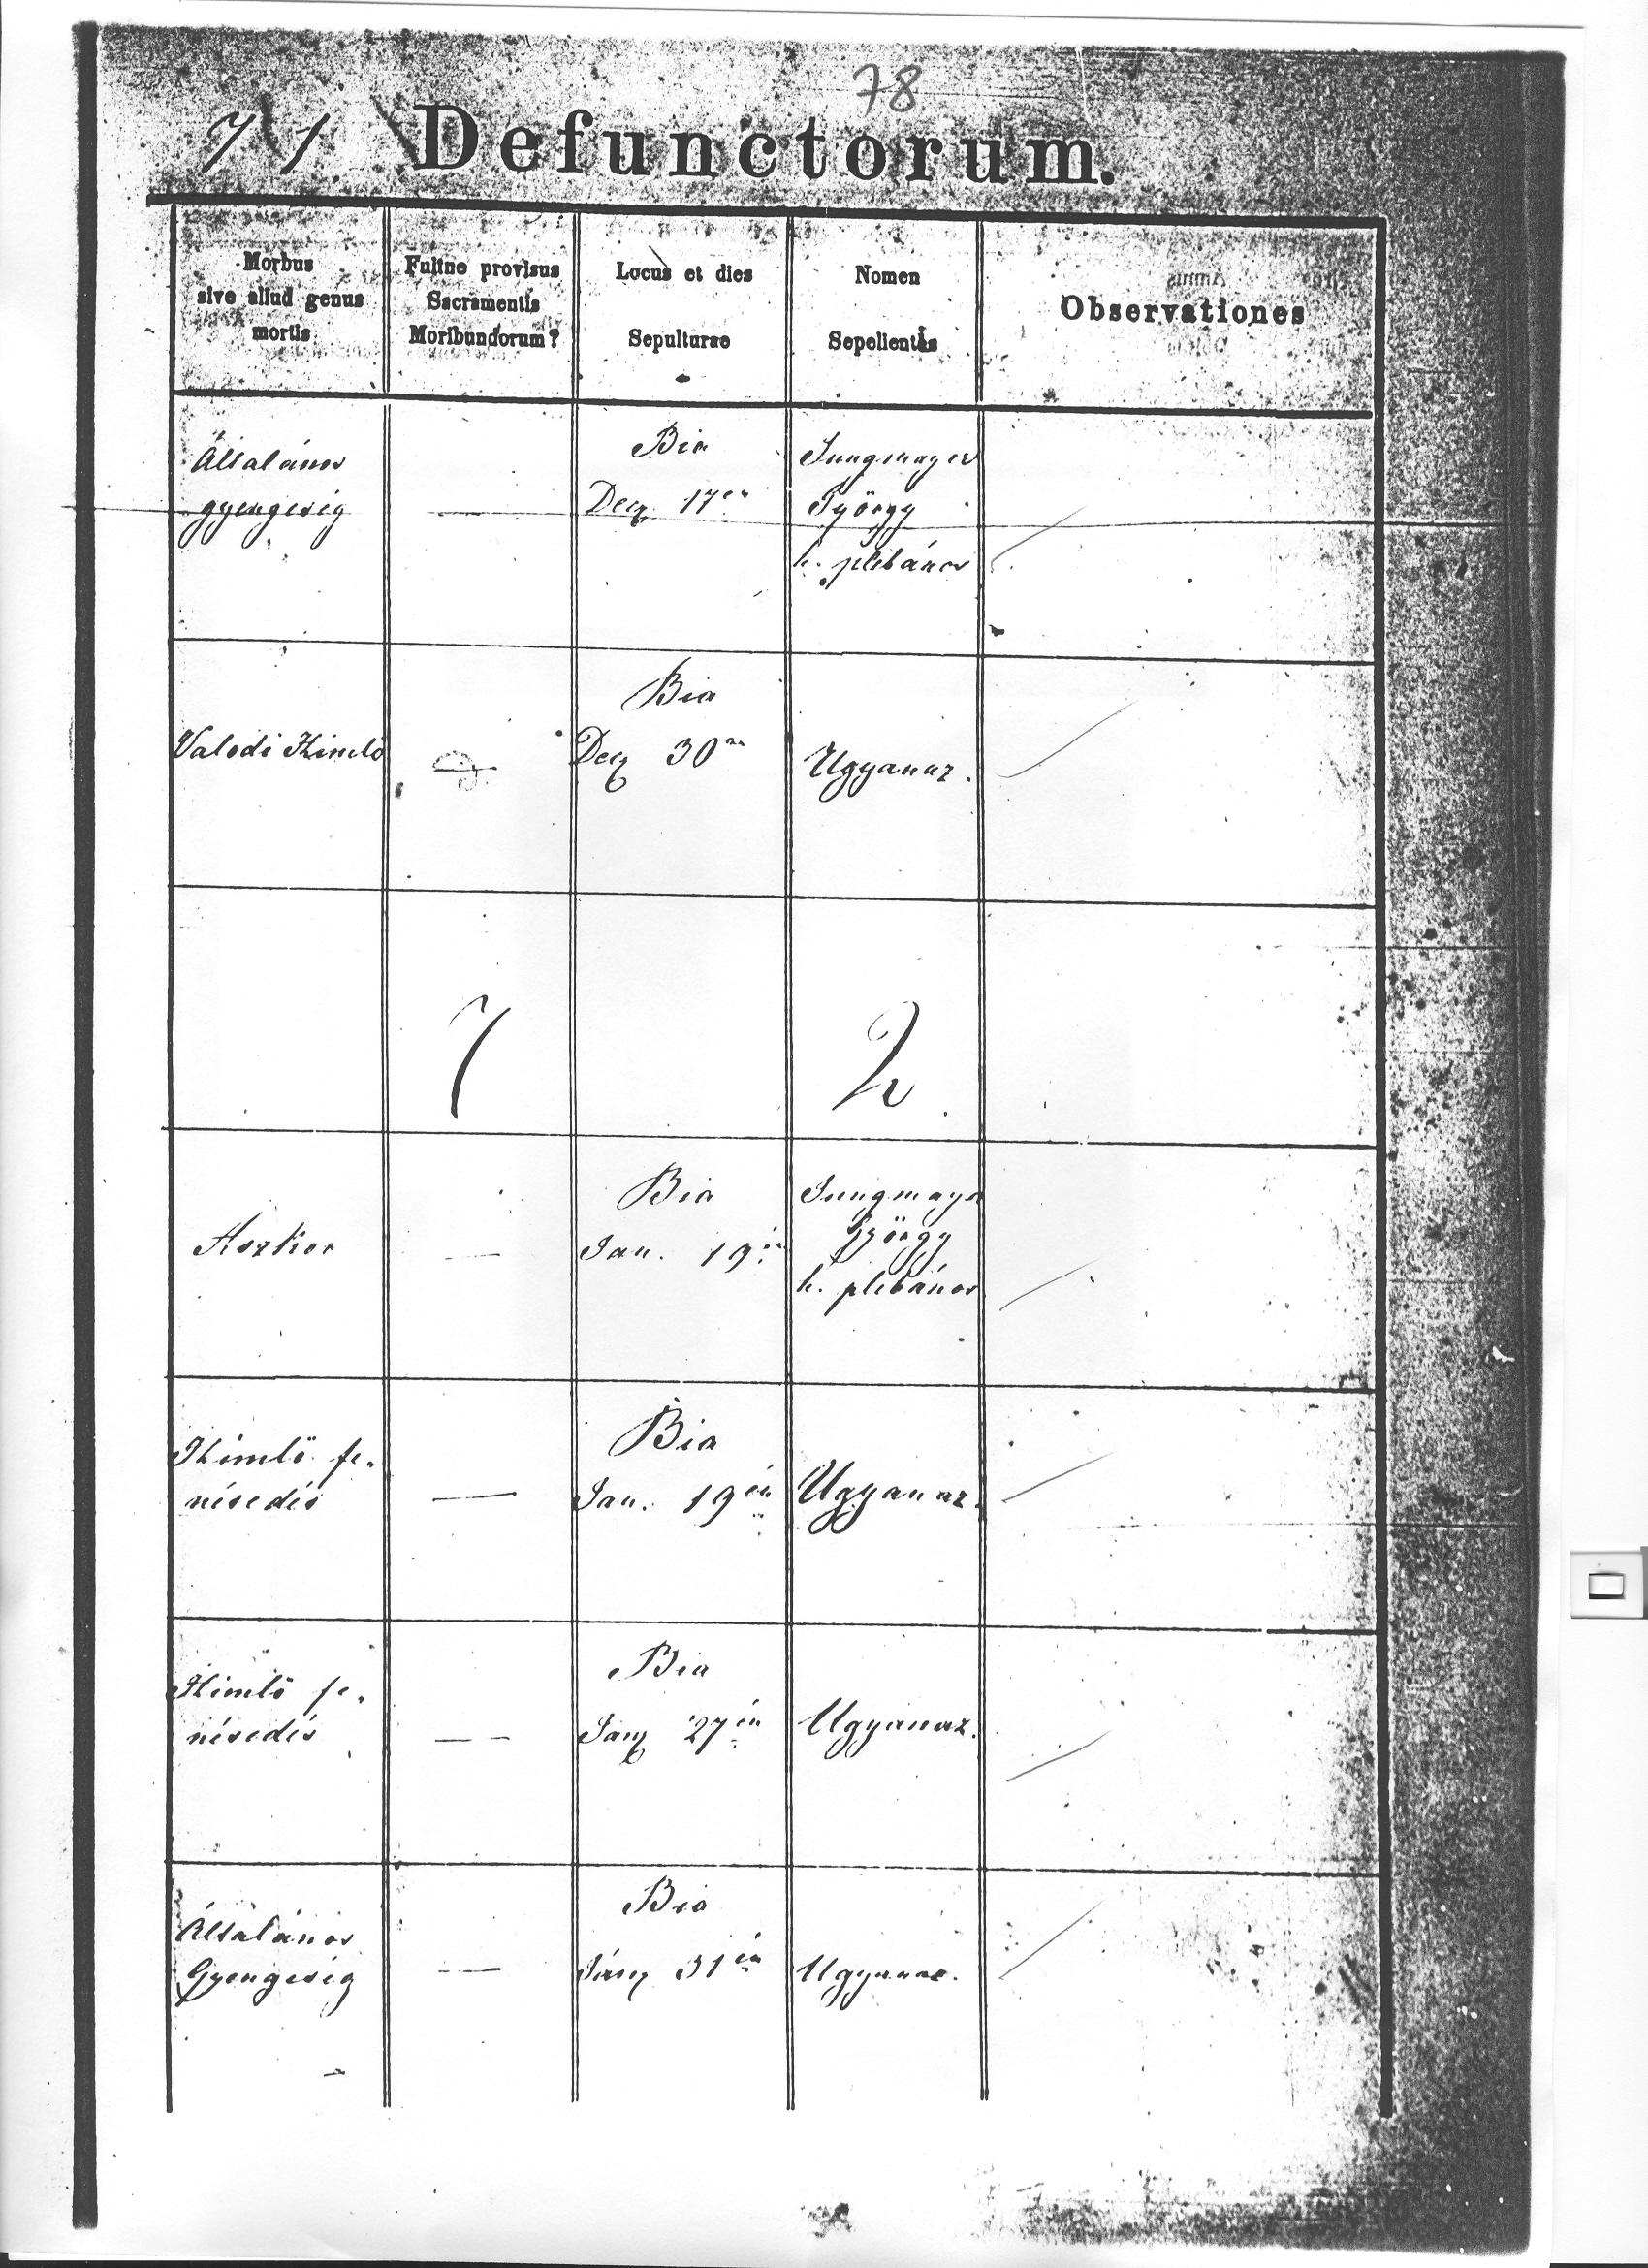 78
71 Defunctorum.
Morbus
sive aliud genus
mortis
Fuitne provisus
Sacramentis
Moribundorum?
Locus et dies
Sepulturae
Nomen
Sepelientis
Observationes
Általános
gyengeség
—
Bia
Decz 17én
Jungmayer
György
h. plebános
Valodi Himlő
—
Bia
Decz 30án
Ugyanaz.
7 2
Aszkor
—
Bia
Jan. 19én
Jungmayer
György
h. plebános
Himlő fe-
nésedés
—
Bia
Jan. 19én
Ugyanaz.
Himlő fe-
nésedés
—
Bia
Janz 27én
Ugyanaz.
Általános
Gyengeség
—
Bia
Jánz 31én
Ugyanaz.